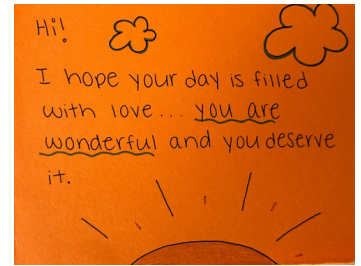 Hi!
I hope your day is filled
with love... you are
wonderful and you deserve
it.